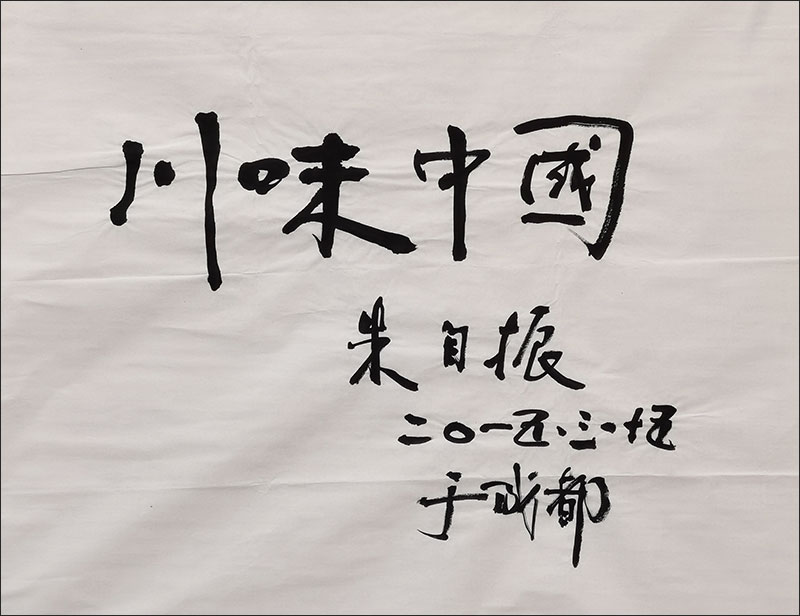 川味中國
朱自振
二〇一五、三、十五
于成都